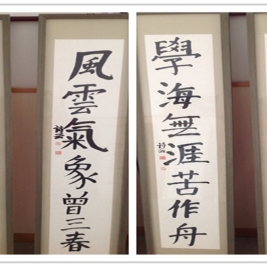 風雲氣象曾三春
學海無涯苦作舟